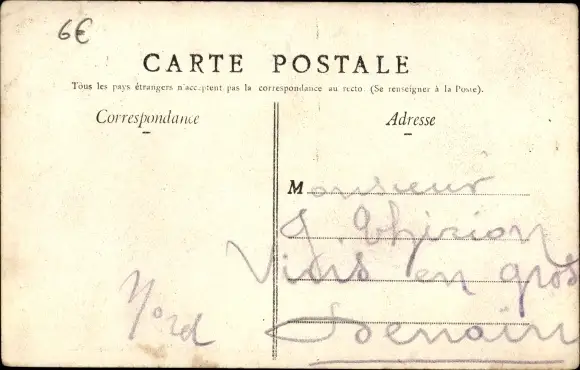 6€
CARTE POSTALE
Tous les pays étrangers n'acceptent pas la correspondance au recto. (Se renseigner à la Poste).
Correspondance
Adresse
Monsieur
J. Thirion
Vins en gros
Denain
Nord